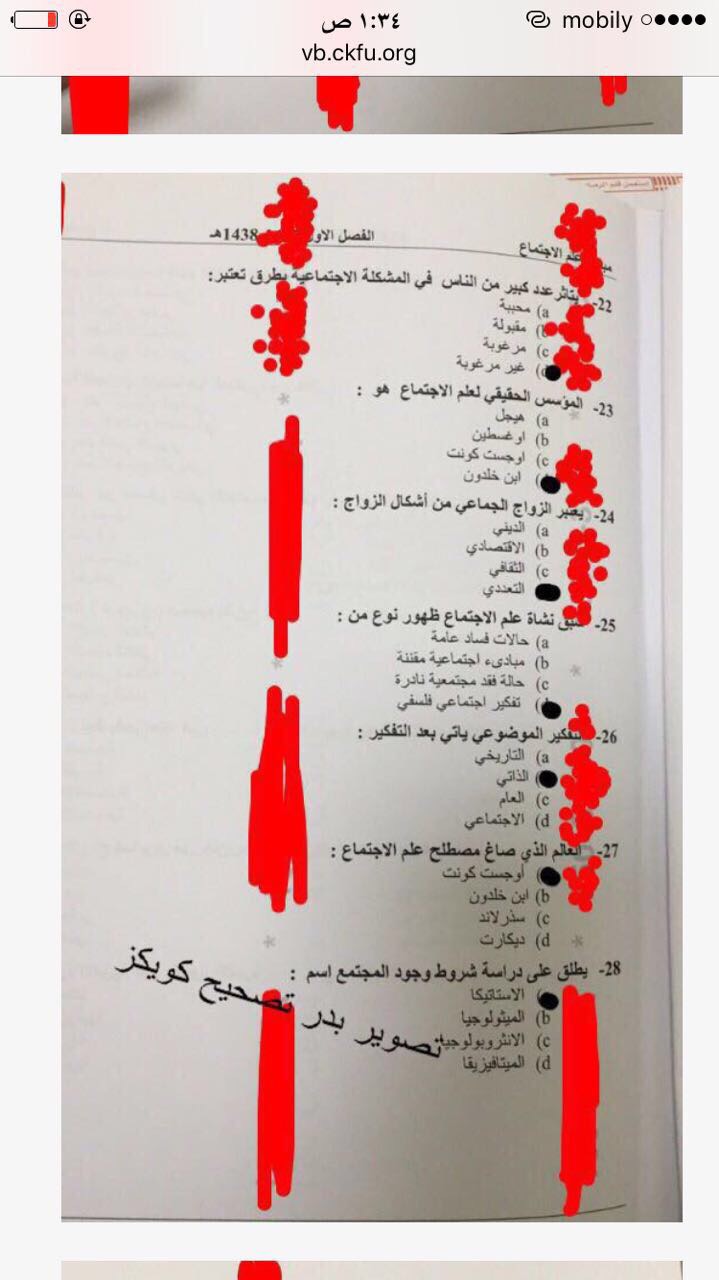 mobily
١:٣٤ ص
vb.ckfu.org
علم الاجتماع
الفصل الاول 1438هـ
22- يتاثر عدد كبير من الناس في المشكلة الاجتماعية بطرق تعتبر:
a) محببة
b) مقبولة
c) مرغوبة
d) غير مرغوبة
23- المؤسس الحقيقي لعلم الاجتماع هو :
a) هيجل
b) اوغسطين
c) اوجست كونت
ابن خلدون
24- يعتبر الزواج الجماعي من أشكال الزواج :
a) الديني
b) الاقتصادي
c) الثقافي
التعددي
25- سبق نشاة علم الاجتماع ظهور نوع من :
a) حالات فساد عامة
b) مبادىء اجتماعية مقننة
c) حالة فقد مجتمعية نادرة
تفكير اجتماعي فلسفي
26- التفكير الموضوعي ياتي بعد التفكير :
a) التاريخي
الذاتي
c) العام
d) الاجتماعي
27- العالم الذي صاغ مصطلح علم الاجتماع :
أوجست كونت
b) ابن خلدون
c) سذرلاند
d) ديكارت
28- يطلق على دراسة شروط وجود المجتمع اسم :
الاستاتيكا
b) الميثولوجيا
c) الانثروبولوجيا
d) الميتافيزيقا
تصوير بدر تصحيح كويكز